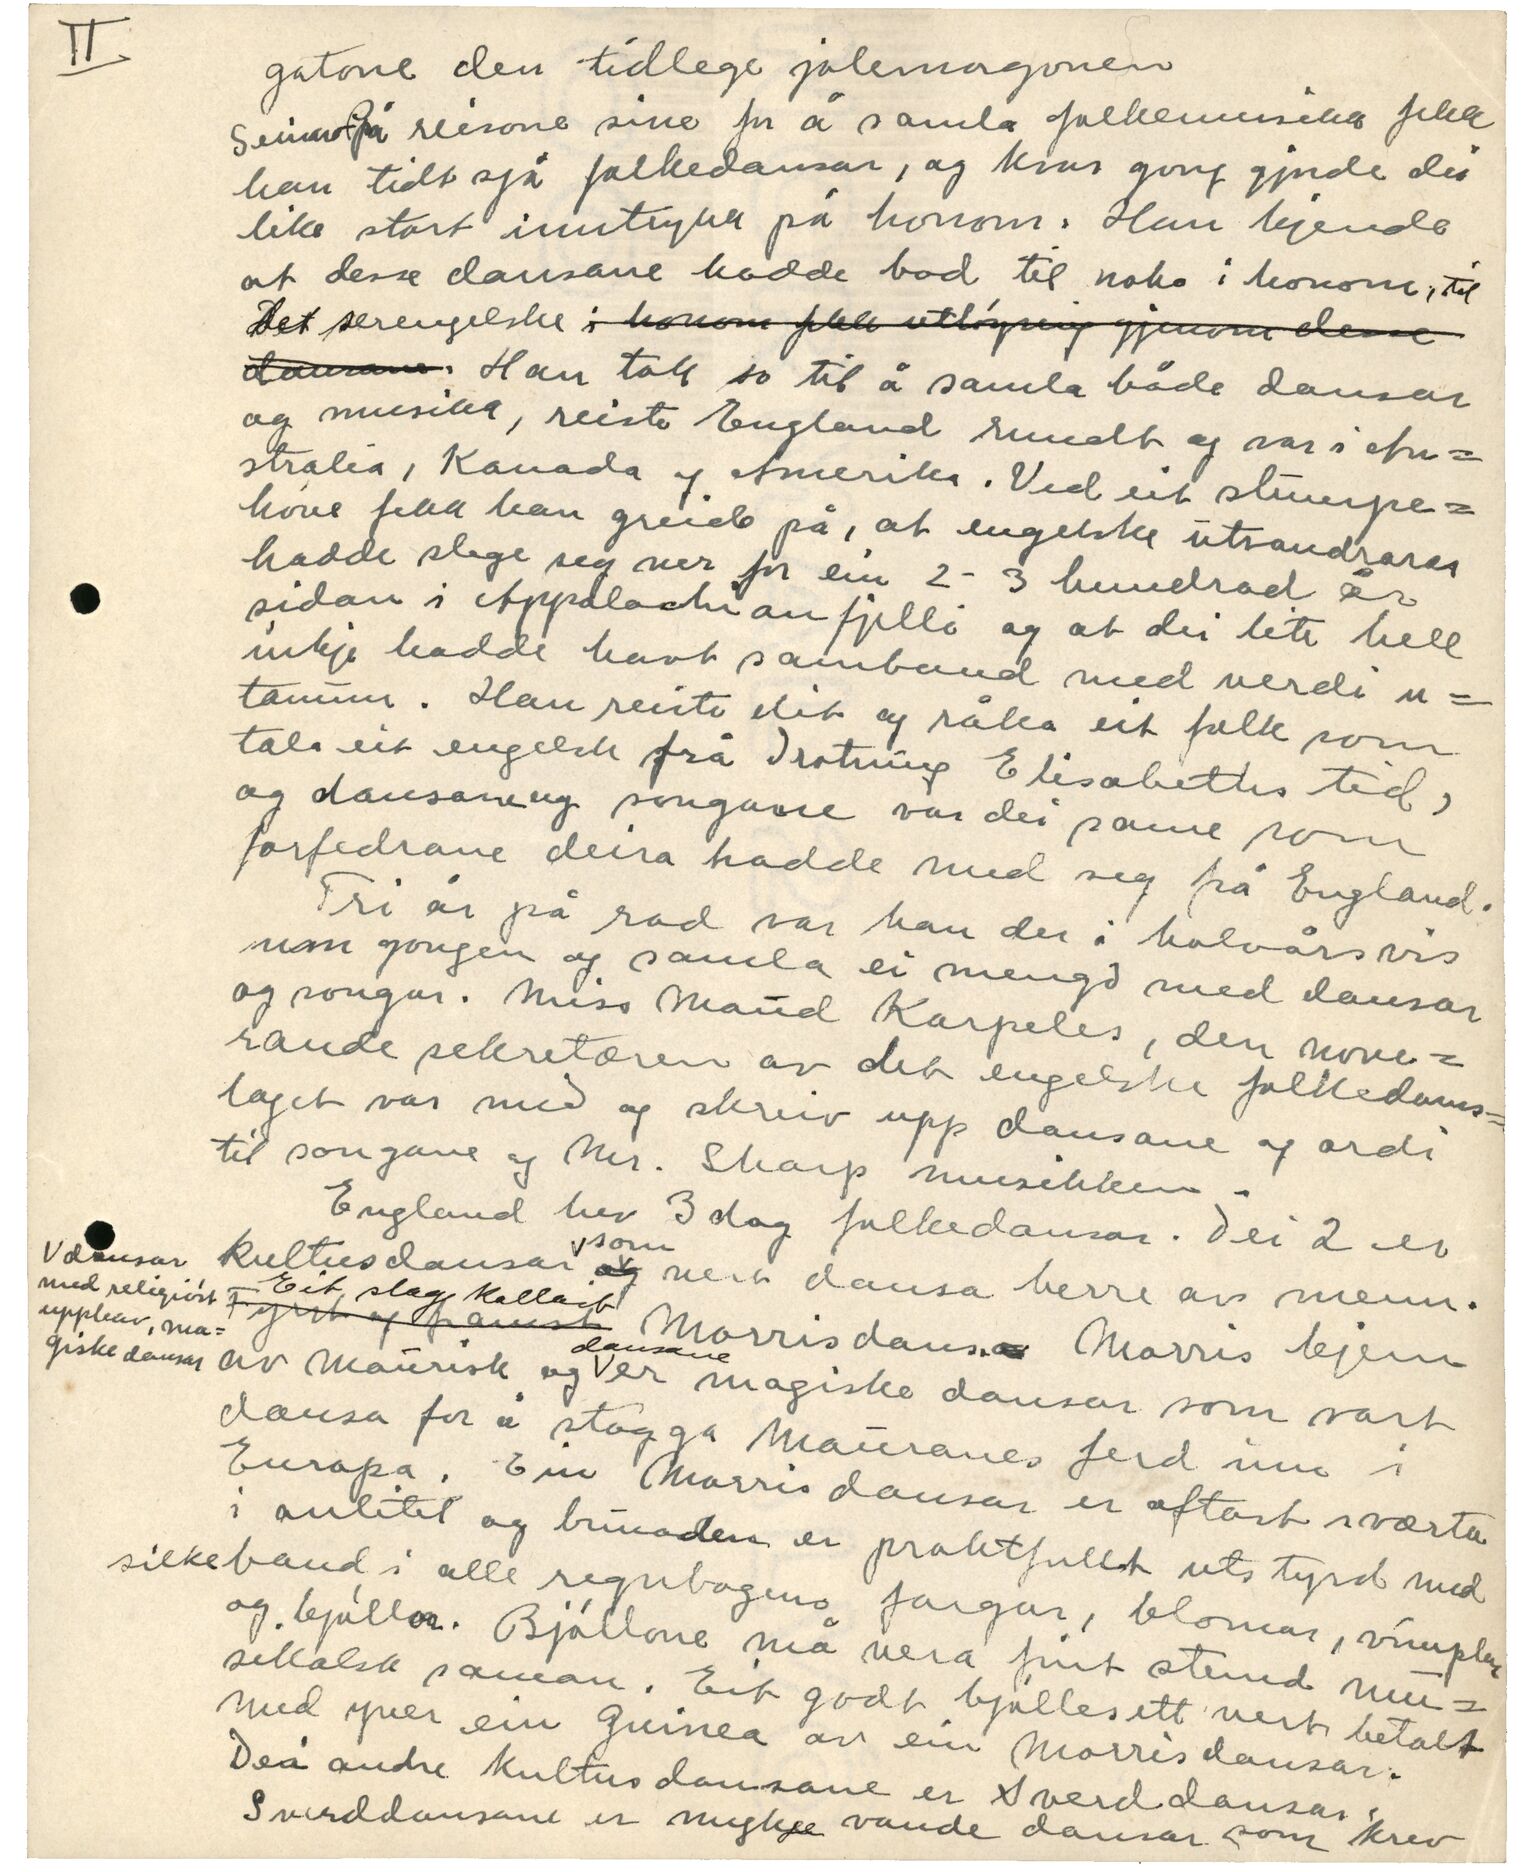 II
gatone den tidlege jolemorgonen
Seinare på reisone sine for å samla folkemusikk fekk
han tidt sjå folkedansar, og kvar gong gjorde dei
like stort inntrykk på honom. Han kjende
at desse dansane hadde bod til noko i honom, til
Det serengelske i honom fekk utløysing gjenom desse
dansane. Han tok so til å samla både dansar
og musikk, reiste England rundt og var i Au=
stralia, Kanada og Amerika. Ved eit slumpe=
høve fekk han greide på, at engelske utvandrarar
hadde slege seg ner for ein 2-3 hundrad år
sidan i Appalachian fjelli og at dei lite hell
inkje hadde havt samband med verdi u=
tanum. Han reiste dit og råka eit folk som
tala eit engelsk frå Drotning Elisabeths tid,
og dansane og songane var dei same som
forfedrane deira hadde med seg frå England.
Tri år på rad var han der i halvårsvis
um gongen og samla ei mengd med dansar
og songar. Miss Maud Karpeles, den nove=
rande sekretæren av det engelske folkedans=
laget var med og skreiv upp dansane og ordi
til songane og Mr. Sharp musikken.
England hev 3 slag folkedansar. Dei 2 er
kultusdansar V som og vert dansa berre av menn.
V dansar
med religiøst
upphav, ma=
giske dansar
Eit slag kallast
Fyrst og fremst Morrisdans. Morris kjem
av Maurisk og V dansane er magiske dansar som vart
dansa for å stogga Mauranes ferd inn i
Europa. Ein Morrisdansar er oftast sværta
i anlitet og bunaden er praktfullt utstyrd med
silkeband i alle regnbogens fargar, blomar, vimplar
og bjøllor. Bjøllone må vera fint stemd mu=
sikalsk saman. Eit godt bjøllesett vert betalt
med yver ein Guinea av ein Morrisdansar.
Dei andre kultusdansane er Sverddansar.
Sverddansane er mykje vande dansar som krev